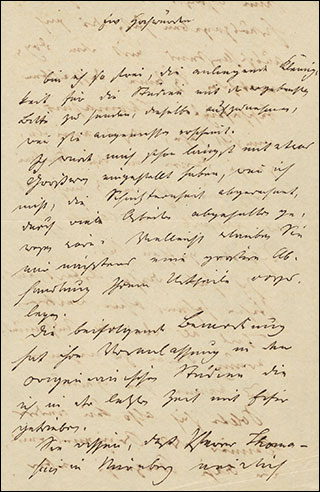 Euer Hochwürden
bin ich so frei, die anliegende Kleinig-
keit für die Studien mit der ergebensten
Bitte zu senden, dieselbe aufzunehmen,
wenn sie angemessen erscheint.
Ich würde mich schon längst mit etwas
Größerem eingestellt haben, wenn ich
nicht, die Schüchternheit abgerechnet,
durch viele Arbeiten abgehalten ge-
wesen wäre. Vielleicht erlauben Sie
mir nächstens eine größere Ab-
handlung Ihrem Urtheile vorzu-
legen.
Die beifolgende Bemerkung
hat ihre Veranlassung in den
origenianischen Studien die
ich in der letzten Zeit mit Eifer
getrieben.
Sie wissen daß Pfarrer Thoma-
sius in Nürnberg neulich